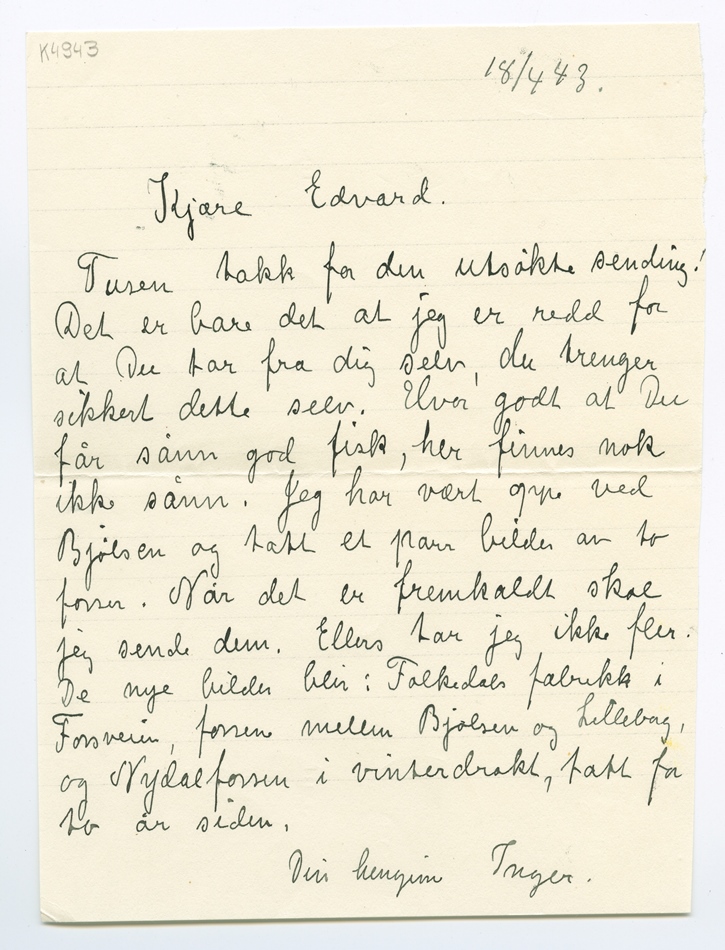 K4943
18/4 43.
Kjære Edvard.
Tusen takk for den utsøkte sending!
Det er bare det at jeg er redd for
at Du tar fra dig selv, du trenger
sikkert dette selv. Hvor godt at Du
får sånn god fisk, her finnes nok
ikke sånn. Jeg har vært oppe ved
Bjølsen og tatt et parr bilder av to
fosser. Når det er fremkaldt skal
jeg sende dem. Ellers tar jeg ikke fler.
De nye bilder blir: Falkedals fabrikk i
Fossveien, fossene mellem Bjølsen og Lilleborg,
og Nydalfossen i vinterdrakt, tatt for
to år siden.
Din hengivne Inger.